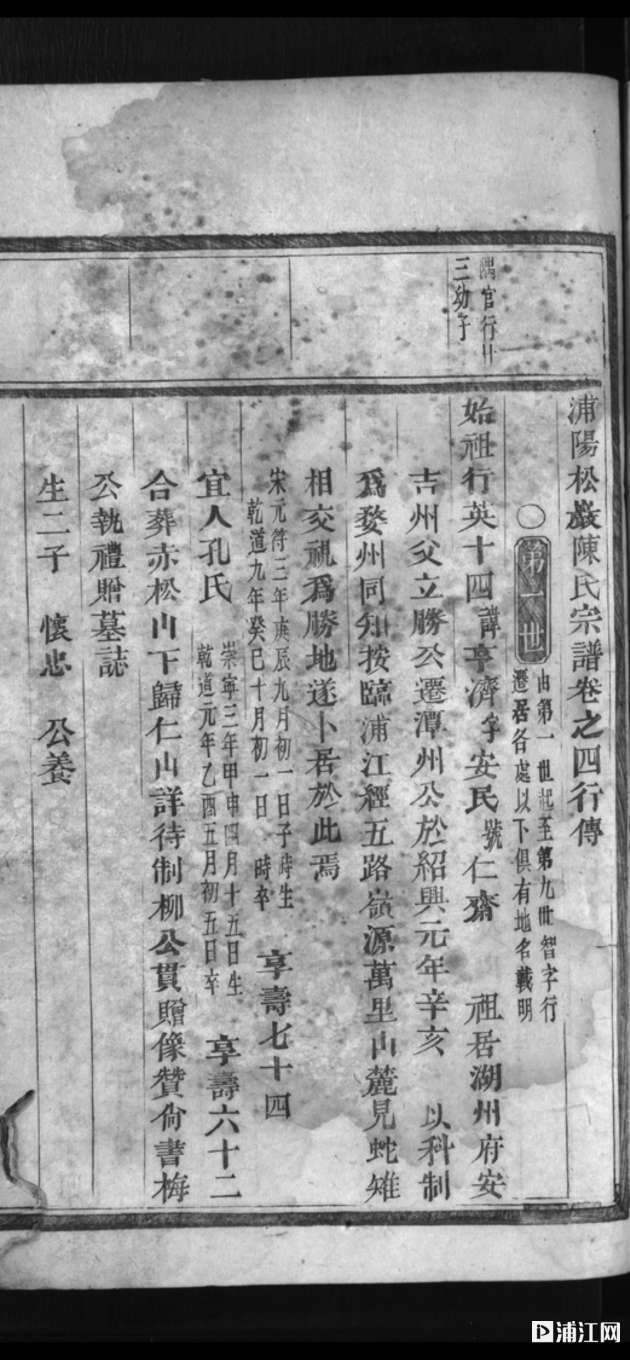 浦陽松巖陳氏宗譜卷之四行傳
○ 第一世 由第一世起至第九世智字行
遷居各處以下俱有地名載明
隅官行廿
三幼子
始祖行英十四諱亨濟字安民號仁齋 祖居湖州府安
吉州父立勝公遷潭州公於紹興元年辛亥 以科制
爲婺州同知按臨浦江經五路嶺源萬里山麓見蛇雉
相交視爲勝地遂卜居於此焉
宋元符三年庚辰九月初一日子時生
乾道九年癸巳十月初一日 時卒
享壽七十四
宜人孔氏
崇寧三年甲申四月十五日生
乾道元年乙酉五月初五日卒
享壽六十二
合葬赤松山下歸仁山詳待制柳公貫贈像贊尙書梅
公執禮贈墓誌
生二子 懷忠 公養
浦江网